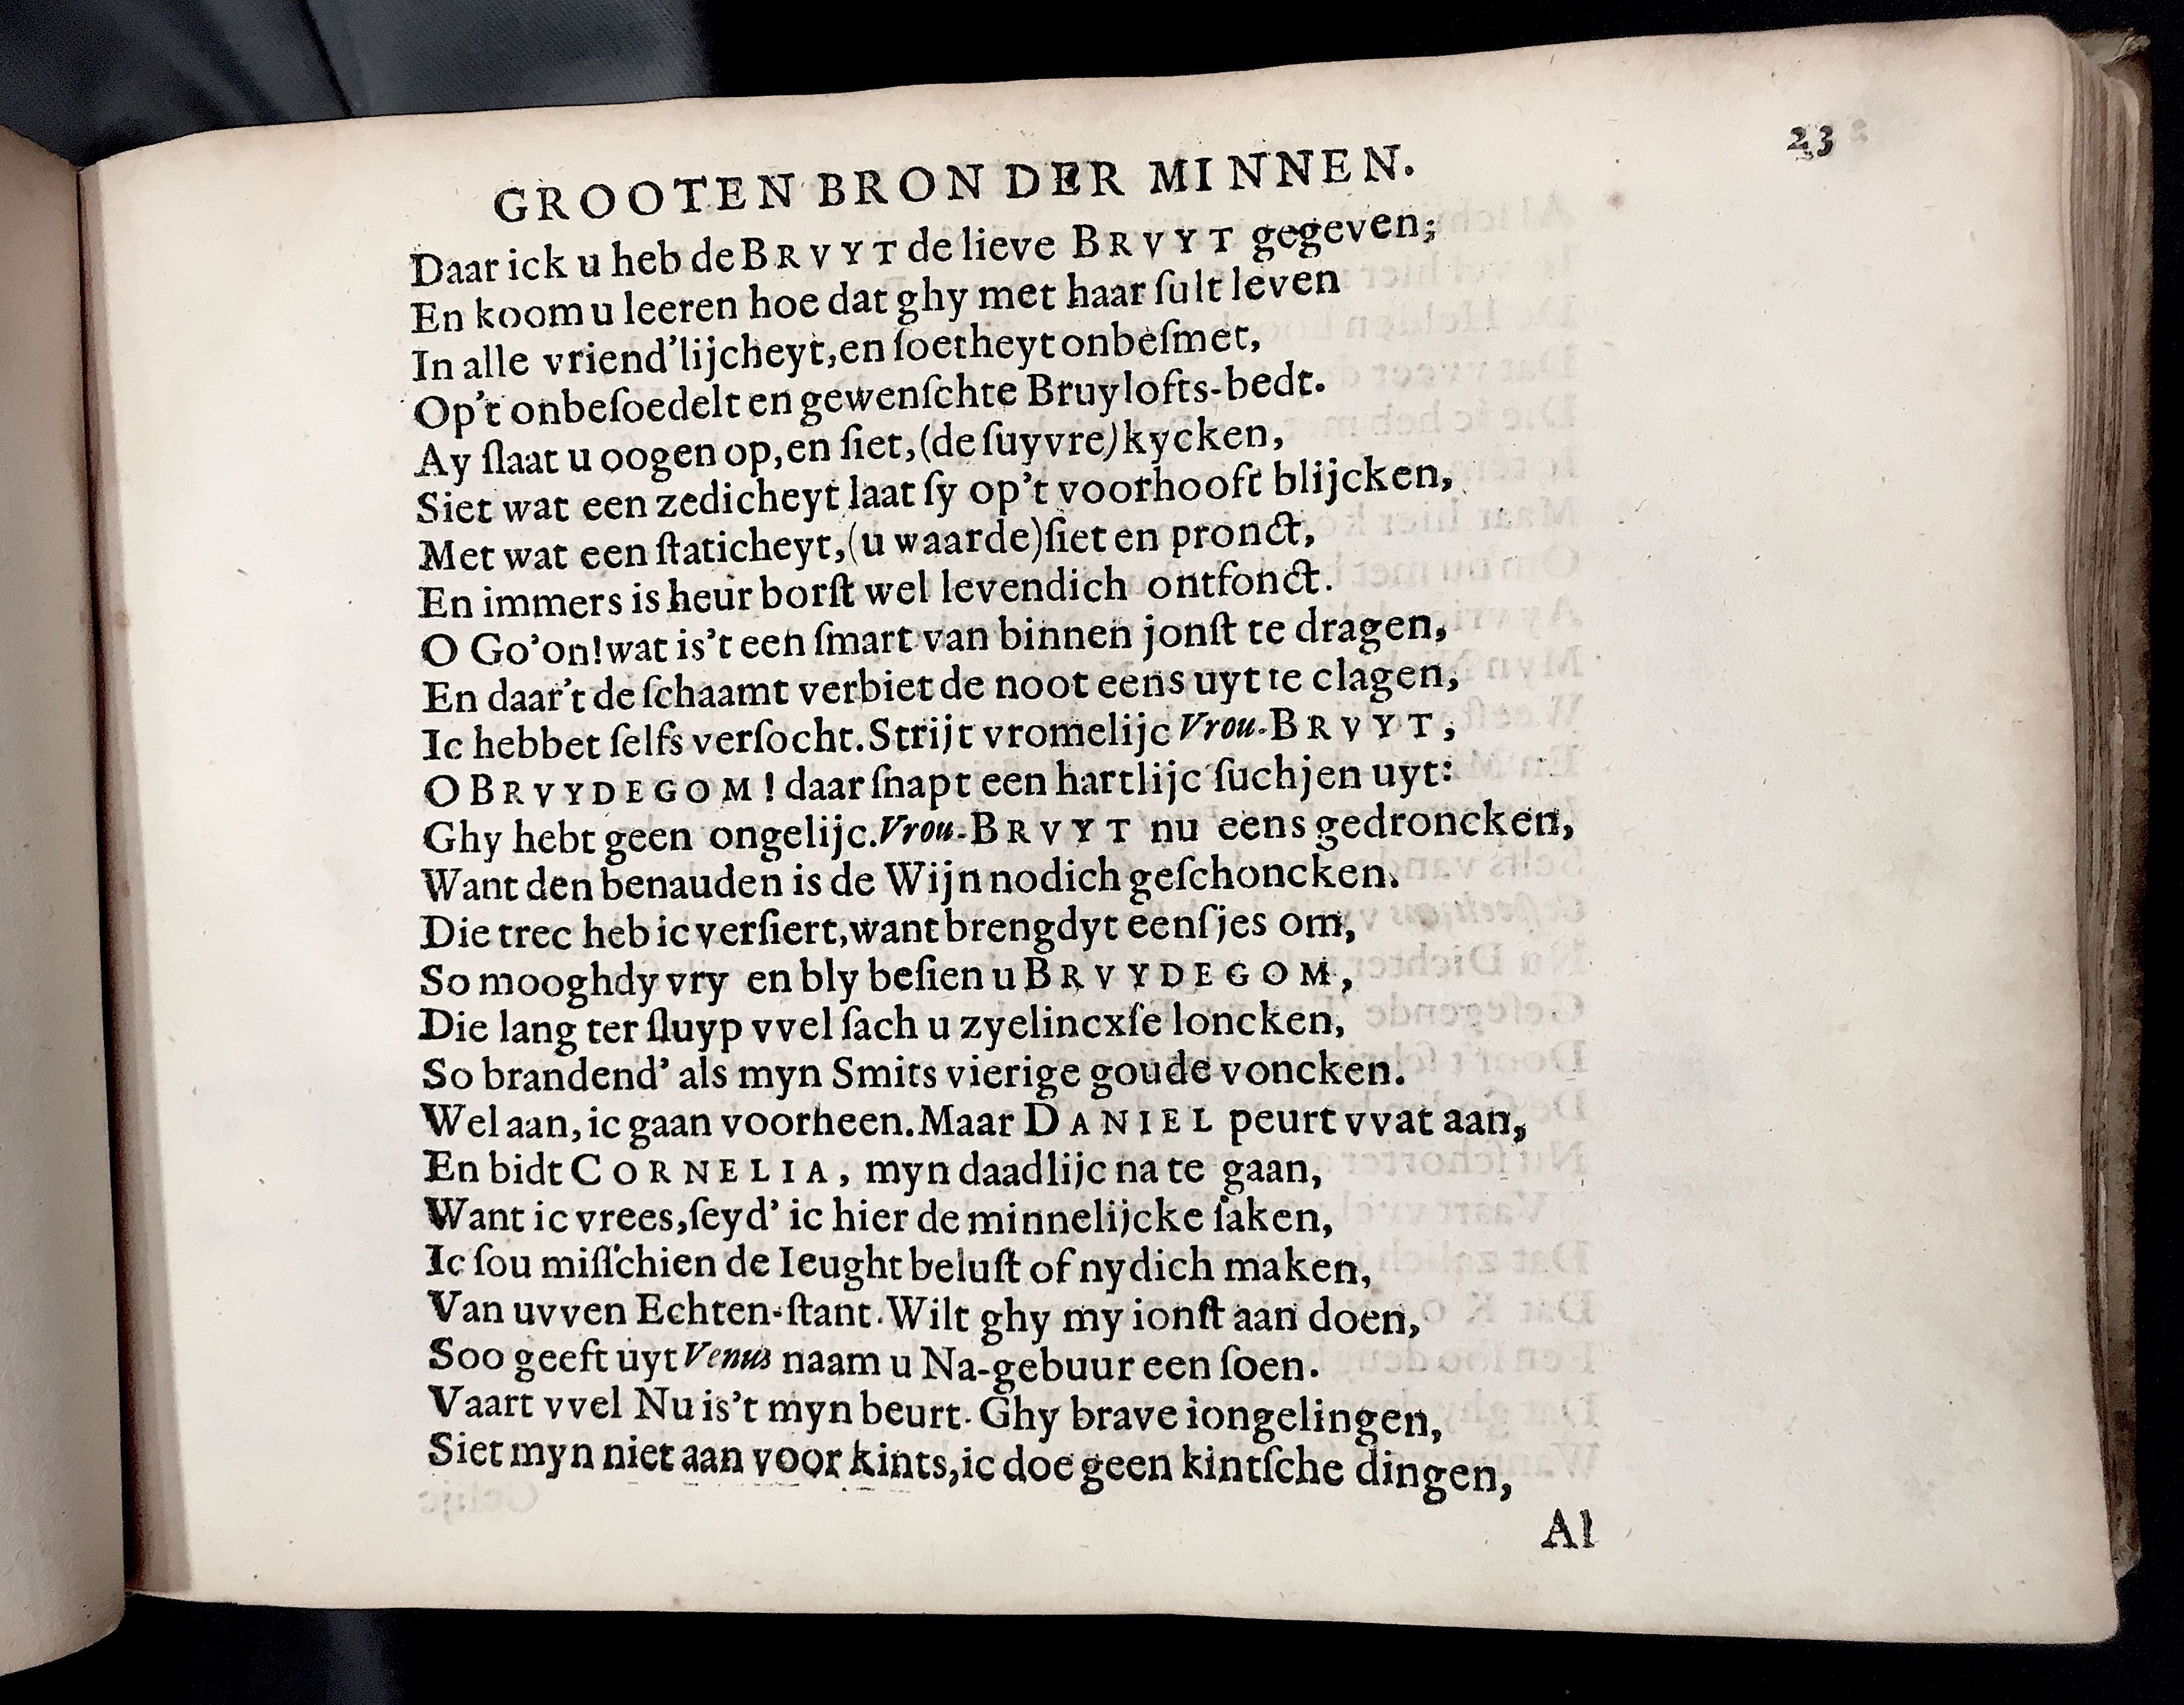 GROOTEN BRON DER MINNEN. 23
Daar ick u heb de BRVYT de lieve BRVYT gegeven;
En koom u leeren hoe dat ghy met haar ſult leven
In alle vriend'lijcheyt, en ſoetheyt onbeſmet,
Op't onbeſoedelt en gewenſchte Bruylofts-bedt.
Ay ſlaat u oogen op, en ſiet, (de ſuyvre) kycken,
Siet wat een zedicheyt laat ſy op't voorhooft blijcken,
Met wat een ſtaticheyt, (u waarde) ſiet en pronct,
En immers is heur borſt wel levendich ontfonct.
O Go'on! wat is't een ſmart van binnen jonſt te dragen,
En daar't de ſchaamt verbiet de noot eens uyt te clagen,
Ic hebbet ſelfs verſocht. Strijt vromelijc Vrou-BRVYT,
O BRVYDEGOM! daar ſnapt een hartlijc ſuchjen uyt:
Ghy hebt geen ongelijc. Vrou-BRVYT nu eens gedroncken,
Want den benauden is de Wijn nodich geſchoncken.
Die trec heb ic verſiert, want brengdyt eenſjes om,
So mooghdy vry en bly beſien u BRVYDEGOM,
Die lang ter ſluyp vvel ſach u zyelincxſe loncken,
So brandend' als myn Smits vierige goude voncken.
Wel aan, ic gaan voorheen. Maar DANIEL peurt vvat aan,
En bidt CORNELIA, myn daadlijc na te gaan,
Want ic vrees, ſeyd' ic hier de minnelijcke ſaken,
Ic ſou miſſchien de Ieught beluſt of nydich maken,
Van uvven Echten-ſtant. Wilt ghy my ionſt aan doen,
Soo geeft uyt Venus naam u Na-gebuur een ſoen.
Vaart vvel Nu is't myn beurt. Ghy brave iongelingen,
Siet myn niet aan voor kints, ic doe geen kintſche dingen,
Al